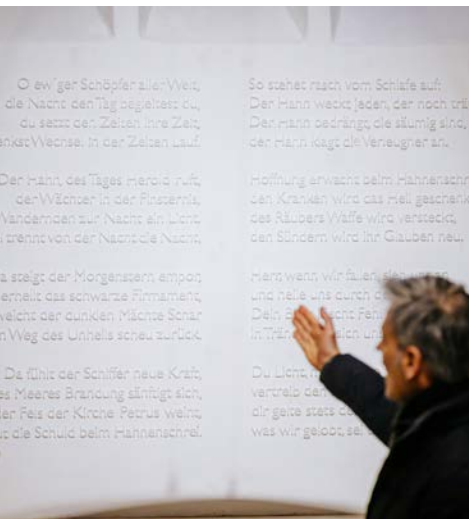 O ew'ger Schöpfer aller Welt,
die Nacht, den Tag begleitest du,
du setzt den Zeiten ihre Zeit,
Wechsel in der Zeiten Lauf.
Der Hahn, des Tages Herold ruft,
der Wächter in der Finsternis,
Wandernden zur Nacht ein Licht,
trennt von der Nacht die Nacht,
steigt der Morgenstern empor,
erhellt das schwarze Firmament,
weicht der dunklen Mächte Schar
Weg des Unheils scheu zurück.
Da fühlt der Schiffer neue Kraft,
des Meeres Brandung sänftigt sich,
der Fels der Kirche Petrus weint,
die Schuld beim Hahnenschrei.
So stehet rasch vom Schlafe auf:
Der Hahn weckt jeden, der noch
Der Hahn bedrängt, die säumig sind,
der Hahn klagt die Verleugner an.
Hoffnung erwacht beim
den Kranken wird das Heil
des Räubers Waffe wird versteckt,
den Sündern wird ihr Glauben neu.
Herr, wenn wir fallen, sieh uns an
und heile uns durch
Dein
in
Du Licht,
vertreib den
dir gelte stets
was wir gelobt, sei